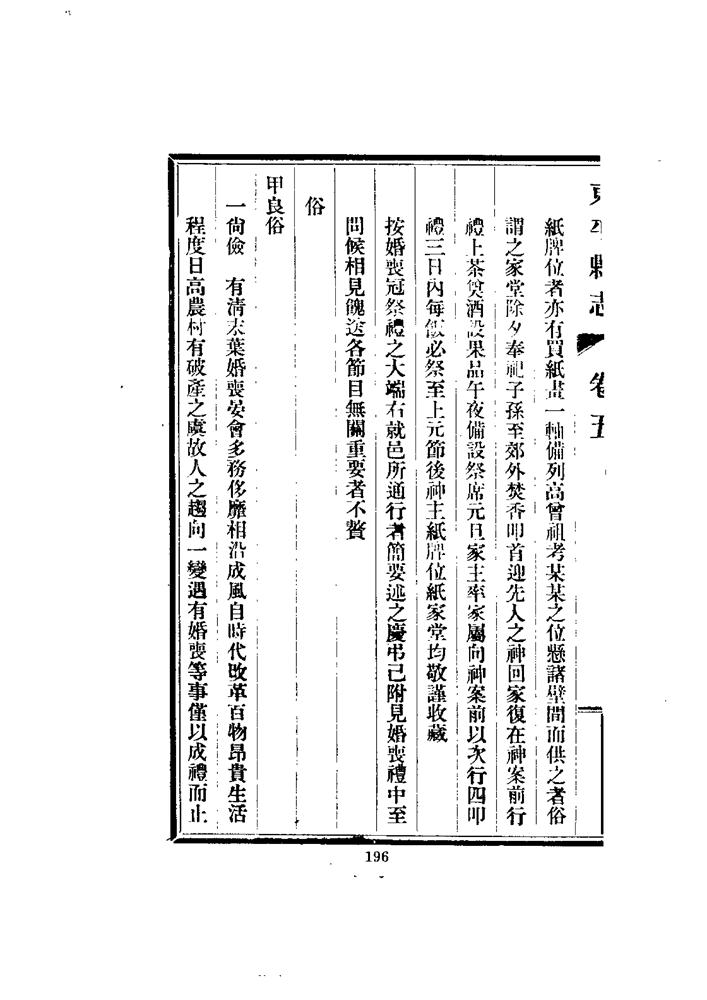 東平縣志 卷五
紙牌位者亦有買紙畫一軸備列高曾祖考某某之位懸諸壁間而供之者俗
謂之家堂除夕奉祀子孫至郊外焚香叩首迎先人之神回家復在神案前行
禮上茶奠酒設果品午夜備設祭席元旦家主率家屬向神案前以次行四叩
禮三日內每飯必祭至上元節後神主紙牌位紙家堂均敬謹收藏
按婚喪冠祭禮之大端右就邑所通行者簡要述之慶弔已附見婚喪禮中至
問候相見餽送各節目無關重要者不贅
俗
甲良俗
一尙儉 有清末葉婚喪宴會多務侈靡相沿成風自時代改革百物昂貴生活
程度日高農村有破產之虞故人之趨向一變遇有婚喪等事僅以成禮而止
196